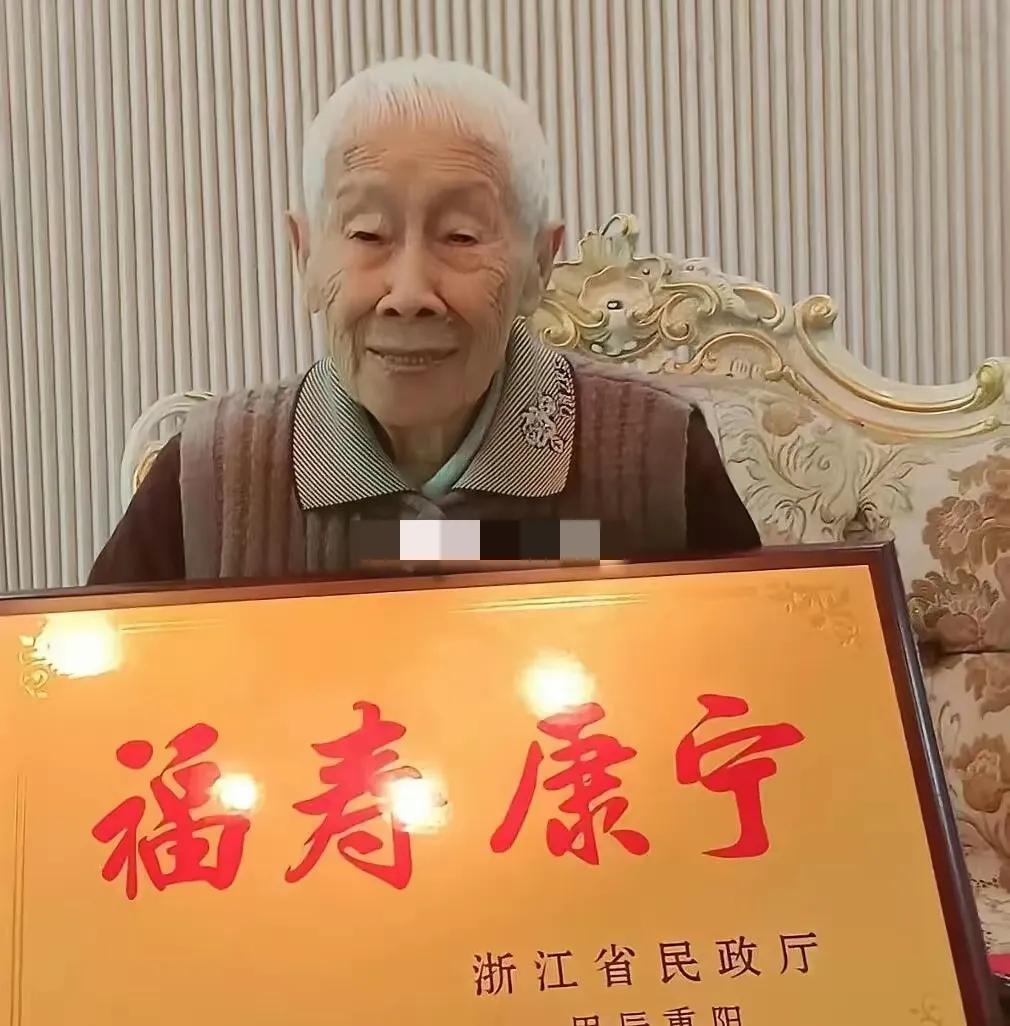 福寿康宁
浙江省民政厅
甲辰重阳